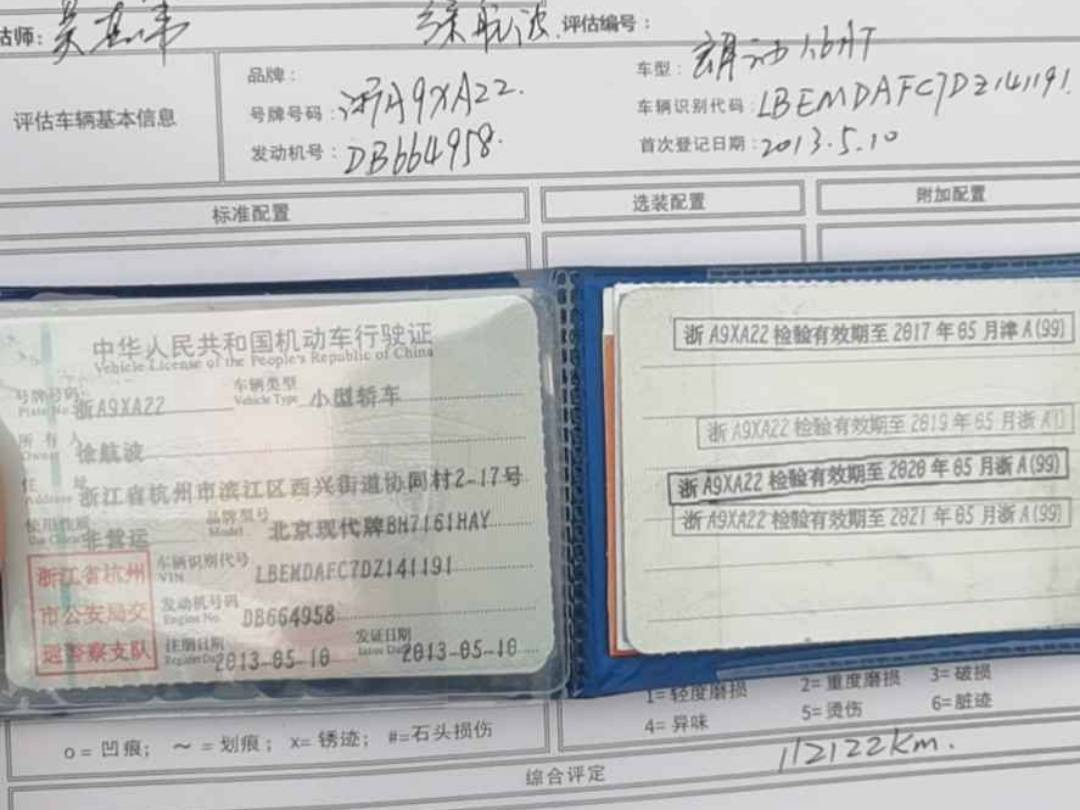 估师：吴
徐航波 评估编号：
品牌： 车型：朗动1.6AT
评估车辆基本信息
号牌号码：浙A9XA22. 车辆识别代码：LBEMDAFC7DZ141191.
发动机号：DB664958. 首次登记日期：2013.5.10
标准配置 选装配置 附加配置
中华人民共和国机动车行驶证
Vehicle License of the People's Republic of China
号牌号码 Plate No. 浙A9XA22 车辆类型 Vehicle Type 小型轿车
所有人 Owner 徐航波
住址 Address 浙江省杭州市滨江区西兴街道协同村2-17号
使用性质 Use Character 非营运 品牌型号 Model 北京现代牌BH7161HAY
浙江省杭州
市公安局交
巡警察支队
车辆识别代号 VIN LBEMDAFC7DZ141191
发动机号码 Engine No. DB664958
注册日期 Register Date 2013-05-10 发证日期 Issue Date 2013-05-10
浙A9XA22 检验有效期至 2017 年 05 月津A(99)
浙A9XA22 检验有效期至 2019 年 05 月浙A()
浙A9XA22 检验有效期至 2020 年 05 月浙A(99)
浙A9XA22 检验有效期至 2021 年 05 月浙A(99)
o = 凹痕； ～ = 划痕； x= 锈迹； #=石头损伤
1= 轻度磨损 2= 重度磨损 3= 破损
4= 异味 5= 烫伤 6=脏迹
综合评定 112122km.